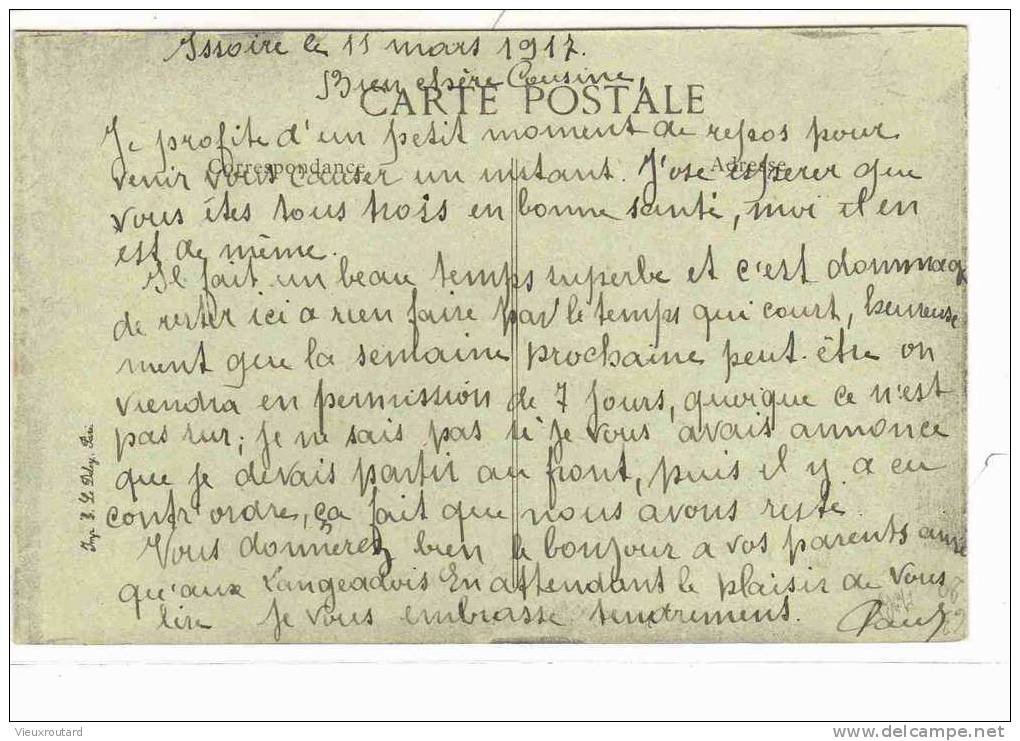 Issoire le 11 mars 1917.
Bien chère Cousine,
CARTE POSTALE
Je profite d'un petit moment de repos pour
Correspondance
Adresse
venir vous causer un instant. J'ose espérer que
vous êtes tous trois en bonne santé, moi il en
est de même.
Il fait un beau temps superbe et c'est dommag
de rester ici a rien faire par le temps qui court, heureuse
ment que la semaine prochaine peut-être on
viendra en permission de 7 jours, quoique ce n'est
pas sur; je ne sais pas si je vous avais annonce
que je devais partir au front, puis il y a eu
contr'ordre, ça fait que nous avons reste.
Vous donnerez bien le bonjour a vos parents ainsi
qu'aux Langeadois En attendant le plaisir de vous
lire je vous embrasse tendrement.
Imp. E. Le Deley, Paris
Vieuxroutard
www.delcampe.net